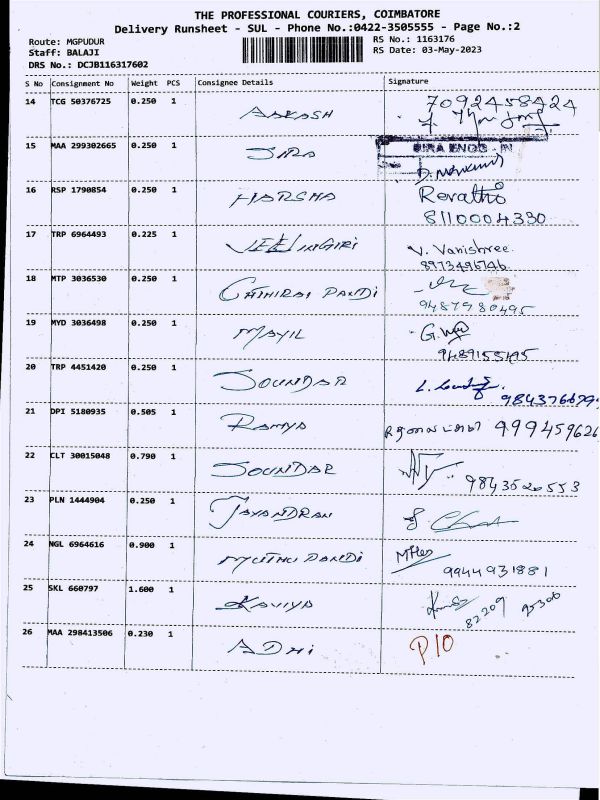 THE PROFESSIONAL COURIERS, COIMBATORE
Delivery Runsheet - SUL - Phone No.:0422-3505555 - Page No.:2
Route: MGPUDUR
Staff: BALAJI
DRS No.: DCJB116317602
RS No.: 1163176
RS Date: 03-May-2023
S No Consignment No Weight PCS Consignee Details Signature
14 TCG 50376725 0.250 1 AAKASH 7092458424
15 MAA 299302665 0.250 1 SIRA SIRA ENGG
16 RSP 1790854 0.250 1 HARSHA Revathi
8110004330
17 TRP 6964493 0.225 1 VELLINGIRI V. Vanishree
8973496746
18 MTP 3036530 0.250 1 CHIHIRAI PANDI
9487980495
19 MYD 3036498 0.250 1 MAYIL
9489155195
20 TRP 4451420 0.250 1 SOUNDAR
984376679
21 DPI 5180935 0.505 1 RAMYA 999459626
22 CLT 30015048 0.790 1 SOUNDAR
9843520553
23 PLN 1444904 0.250 1 JAYANDRAN
24 NGL 6964616 0.900 1 MUTHU PANDI
9944931881
25 SKL 660797 1.600 1 KAVIYA
82209 95306
26 MAA 298413506 0.230 1 ADHI P/O